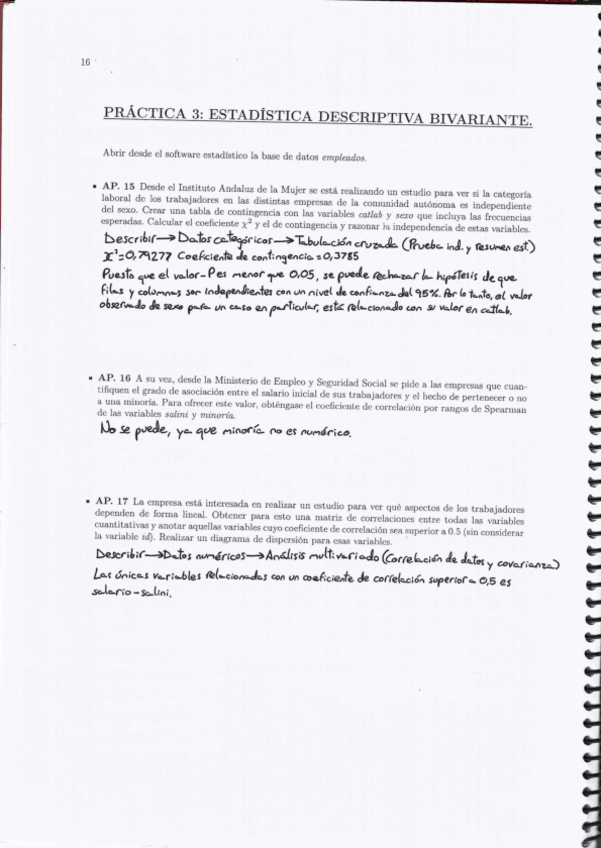 16
PRÁCTICA 3: ESTADÍSTICA DESCRIPTIVA BIVARIANTE.
Abrir desde el software estadístico la base de datos empleados.
▪ AP. 15 Desde el Instituto Andaluz de la Mujer se está realizando un estudio para ver si la categoría
laboral de los trabajadores en las distintas empresas de la comunidad autónoma es independiente
del sexo. Crear una tabla de contingencia con las variables catlab y sexo que incluya las frecuencias
esperadas. Calcular el coeficiente χ² y el de contingencia y razonar la independencia de estas variables.
Describir→Datos categóricos→Tabulación cruzada (Prueba ind. y resumen est.)
χ²=0,79277 Coeficiente de contingencia=0,3785
Puesto que el valor-P es menor que 0,05, se puede rechazar la hipótesis de que
filas y columnas son independientes con un nivel de confianza del 95%. Por lo tanto, el valor
observado de sexo para un caso en particular, está relacionado con su valor en catlab.
▪ AP. 16 A su vez, desde la Ministerio de Empleo y Seguridad Social se pide a las empresas que cuan-
tifiquen el grado de asociación entre el salario inicial de sus trabajadores y el hecho de pertenecer o no
a una minoría. Para ofrecer este valor, obténgase el coeficiente de correlación por rangos de Spearman
de las variables salini y minoría.
No se puede, ya que minoría no es numérico.
▪ AP. 17 La empresa está interesada en realizar un estudio para ver qué aspectos de los trabajadores
dependen de forma lineal. Obtener para esto una matriz de correlaciones entre todas las variables
cuantitativas y anotar aquellas variables cuyo coeficiente de correlación sea superior a 0.5 (sin considerar
la variable id). Realizar un diagrama de dispersión para esas variables.
Describir→Datos numéricos→Análisis multivariado (Correlación de datos y covarianza)
Las únicas variables relacionadas con un coeficiente de correlación superior a 0,5 es
salario-salini.